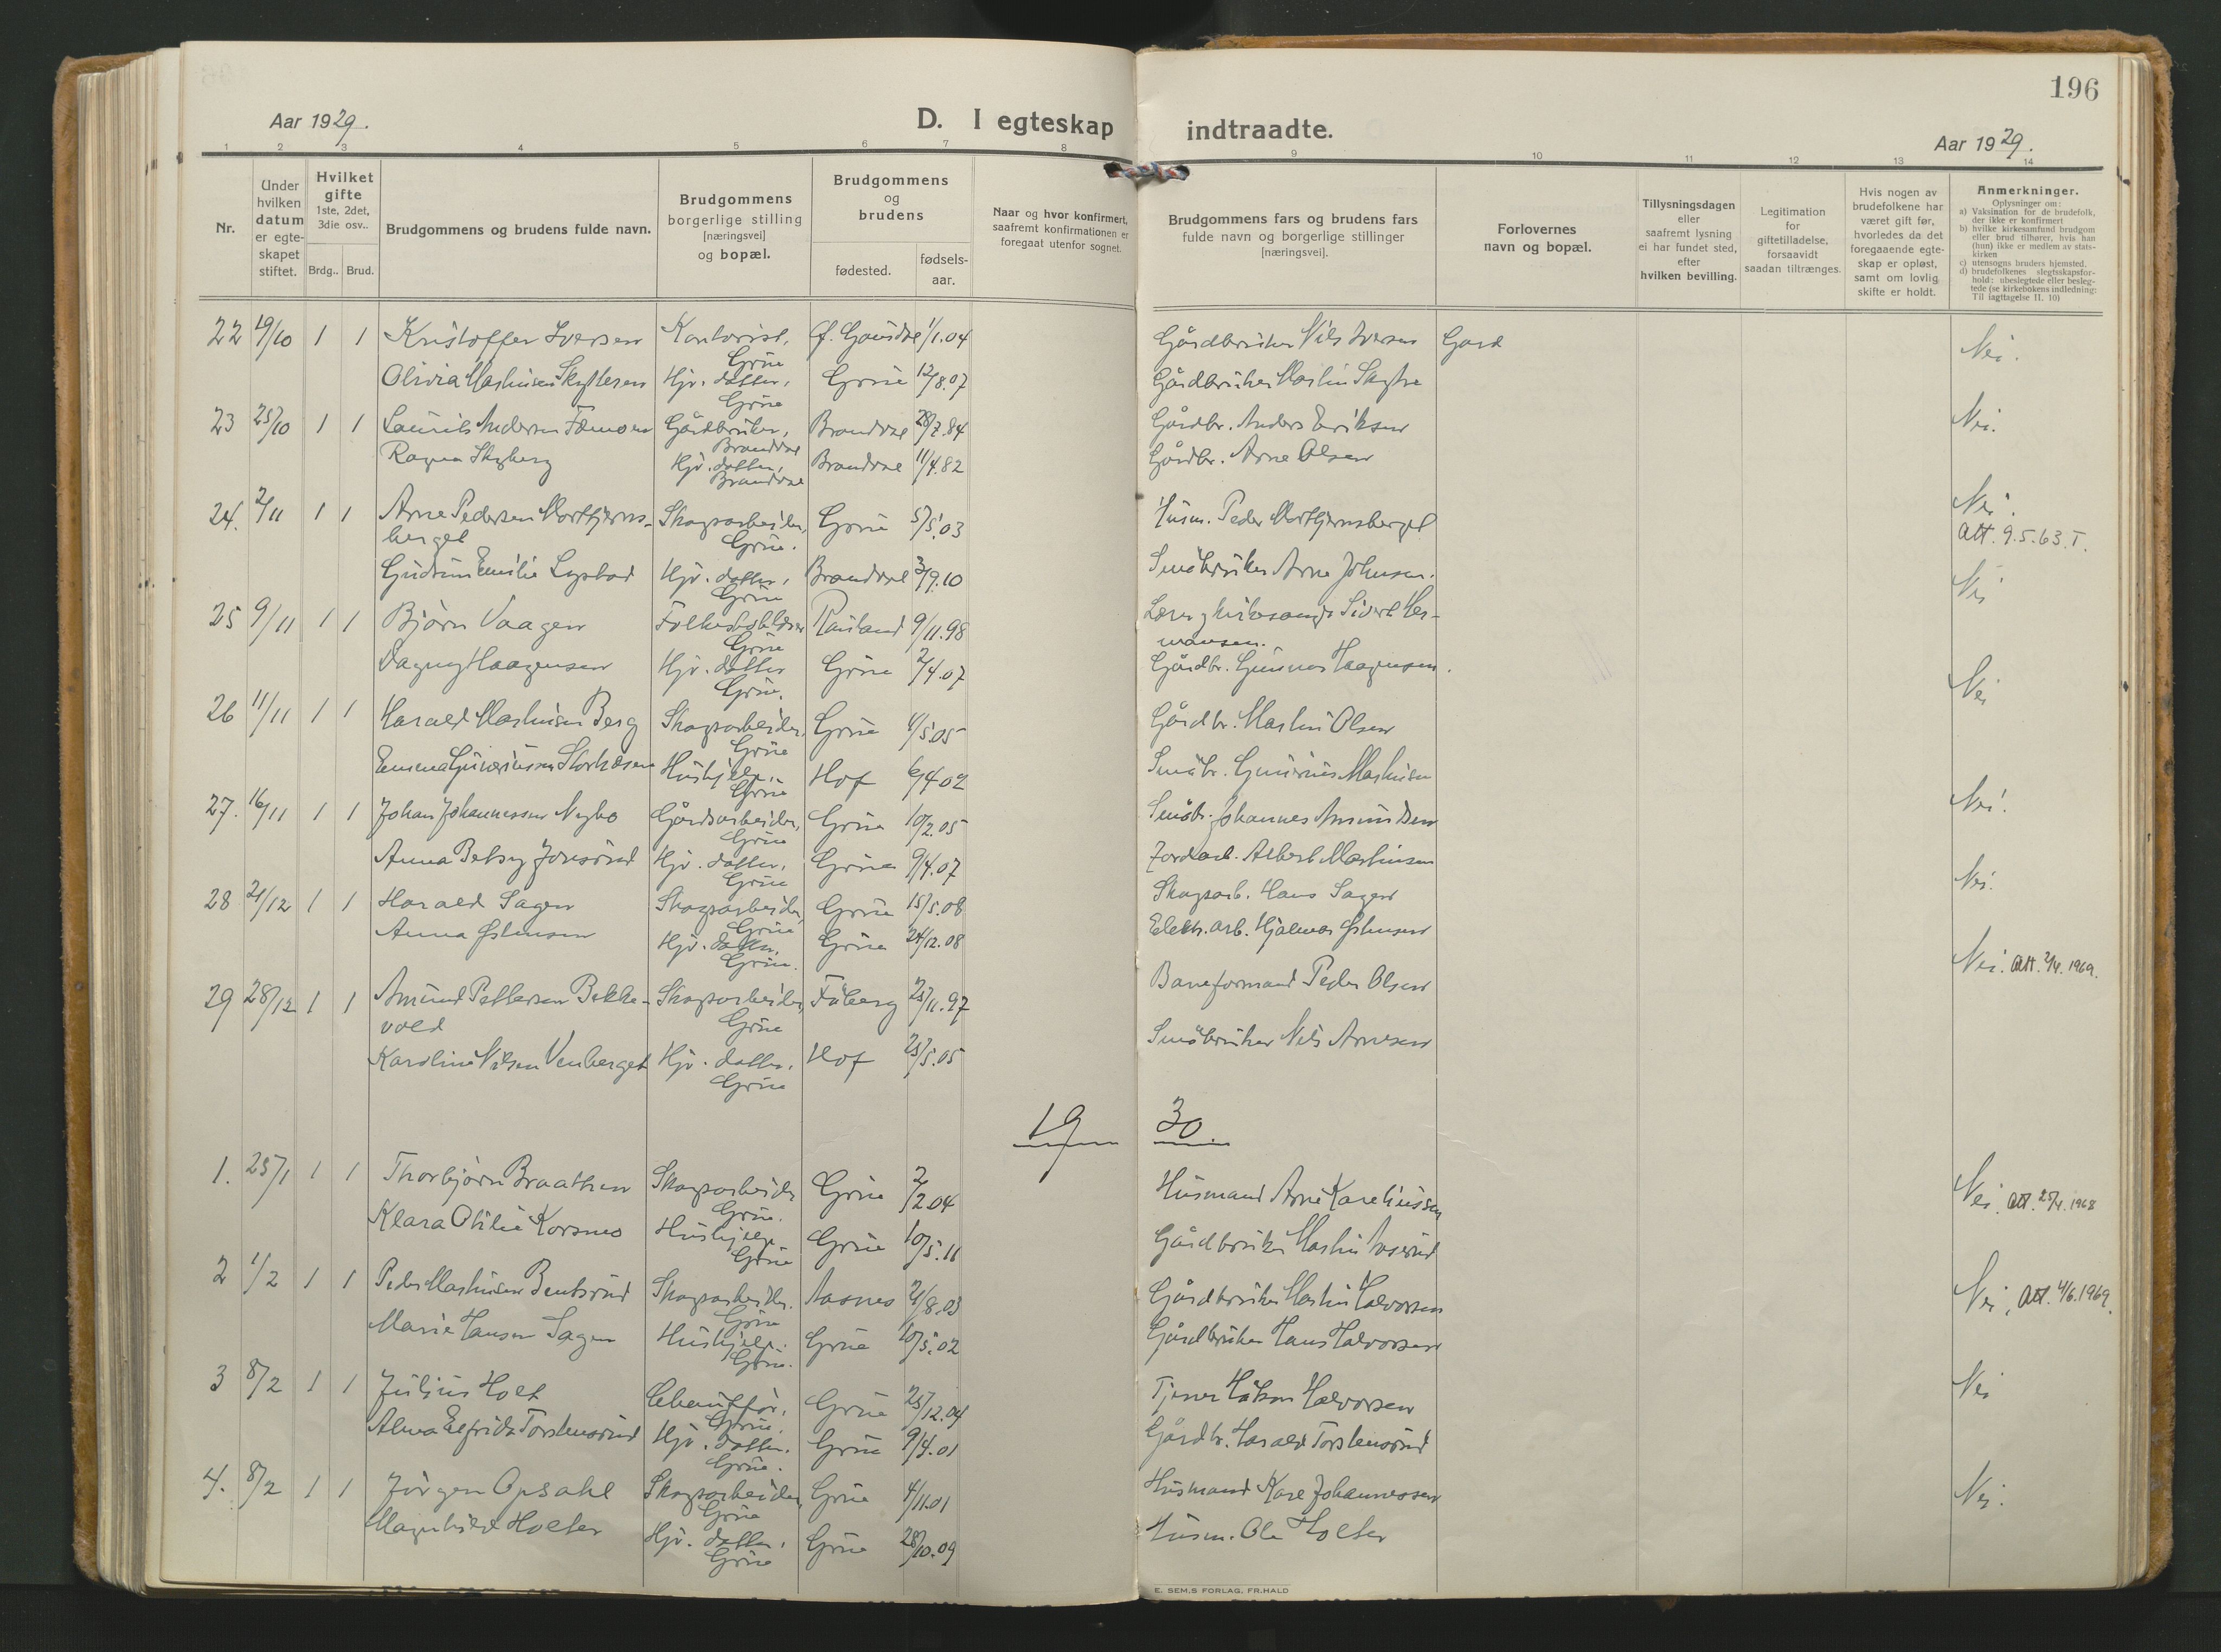 196
Aar 1929.
D. I egteskap indtraadte.
Aar 1929.
1 2 3 4 5 6 7 8 9 10 11 12 13 14
Nr.
Under hvilken datum er egte-skapet stiftet.
Hvilket gifte 1ste, 2det, 3die osv..
Brdg.. Brud.
Brudgommens og brudens fulde navn.
Brudgommens borgerlige stilling [næringsvei] og bopæl.
Brudgommens og brudens
fødested.
fødsels-aar.
Naar og hvor konfirmert, saafremt konfirmationen er foregaat utenfor sognet.
Brudgommens fars og brudens fars fulde navn og borgerlige stillinger [næringsvei].
Forlovernes navn og bopæl.
Tillysningsdagen eller saafremt lysning ei har fundet sted, efter hvilken bevilling.
Legitimation for giftetilladelse, forsaavidt saadan tiltrænges.
Hvis nogen av brudefolkene har været gift før, hvorledes da det foregaaende egte-skap er opløst, samt om lovlig skifte er holdt.
Anmerkninger.
Oplysninger om:
a) Vaksination for de brudefolk, der ikke er konfirmert
b) hvilke kirkesamfund brudgom eller brud tilhører, hvis han (hun) ikke er medlem av stats-kirken
c) utensogns bruders hjemsted.
d) brudefolkenes slegtsskapsfor-hold: ubeslegtede eller besleg-tede (se kirkebokens indledning: Til iagttagelse II. 10)
22 19/10 1 1 Kristoffer Iversen Kontorist, Grue 1/1.04 Gårdbruker Nils Iversen Gard Nei.
Olivia Martinsen Skyttersen Hjv. datter, Grue Grue 12/8.07 Gårdbruker Martin Skytte
23 25/10 1 1 Laurits Andersen Gårdbruker, Brandval Brandval 28/7.84 Gårdbr. Anders Eriksen Nei.
Ragna Skyberg Hjv. datter, Brandval Brandval 11/4.82 Gårdbr. Arne Olsen
24. 2/11 1 1 Arne Pedersen Morttjerns-
berget Skogsarbeider, Grue. Grue 5/5.03 Husm. Peder Morttjernsberget Nei. Att. 9.5.63. T.
Gudrun Emilie Lystad Hjv. datter, Grue Brandval 3/9.10 Småbruker Arne Johnsen.
25 9/11 1 1 Bjørn Vaagen Grue Rauland 9/11.98 Lærer og kirkesanger Sivert Her-
mansen. Nei
Dagny Haagensen Hjv. datter Grue. Grue 2/4.07 Gårdbr. Gunnar Haagensen.
26 11/11 1 1 Harald Martinsen Berg Skogsarbeider, Grue Grue 4/5.05 Gårdbr. Martin Olsen Nei
Emma Guveriussen Hushjelp, Grue Hof 6/4.02 Småbr. Martinsen
27. 16/11 1 1 Johan Johannessen Nybo Gårdsarbeider, Grue Grue 10/2.05 Småbr. Johannes Amundsen Nei.
Anna Betsy Jonsrud Hjv. datter, Grue Grue 9/4.07 Jordarb. Albert Martinsen
28 21/12 1 1 Harald Sagen Skogsarbeider, Grue Grue 15/5.08 Skogsarb. Hans Sagen Nei.
Anna Johnsen Hjv. datter, Grue. Grue 24/12.08 Elektr. arb. Hjalmar Johnsen
29 28/12 1 1 Amund Pettersen Bekke-
vold Skogsarbeider, Grue Fåberg 23/11.97 Baneformand Peder Olsen Nei. Att. 2/4. 1969.
Karoline Nilsen Venberget Hjv. datter, Grue Hof 23/5.05 Småbruker Nils Arnesen
19 30.
1. 25/1 1 1 Thorbjørn Braathen Skogsarbeider Grue. Grue 2/2.04 Husmand Arne Kareliussen Nei. Att. 25/4. 1968
Klara Otilie Korsmo Hushjelp Grue Grue 10/5.11 Gårdbruker Martin
2 1/2 1 1 Peder Martinsen Bentsrud Skogsarbeider. Grue Aasnes 21/8.03 Gårdbruker Martin Halvorsen Nei, Att. 4/6. 1969.
Marie Hansen Sagen Hushjelp. Grue. Grue 10/5.02 Gårdbruker Hans Halvorsen
3 8/2 1 1 Julius Holt Chauffør, Grue. Grue 23/12.04 Tjener Håkon Halvorsen Nei
Alma Elfrida Torstensrud Hjv. datter. Grue. Grue 9/4.01 Gårdbr. Harald Torstensrud
4. 8/2 1 1 Jørgen Opsahl Skogsarbeider, Grue Grue 4/11.01 Husmand Kare Johannessen Nei.
Magnhild Holter Hjv. datter, Grue Grue 28/10.09 Husm. Ole Holter
E. SEM.S FORLAG, FR.HALD